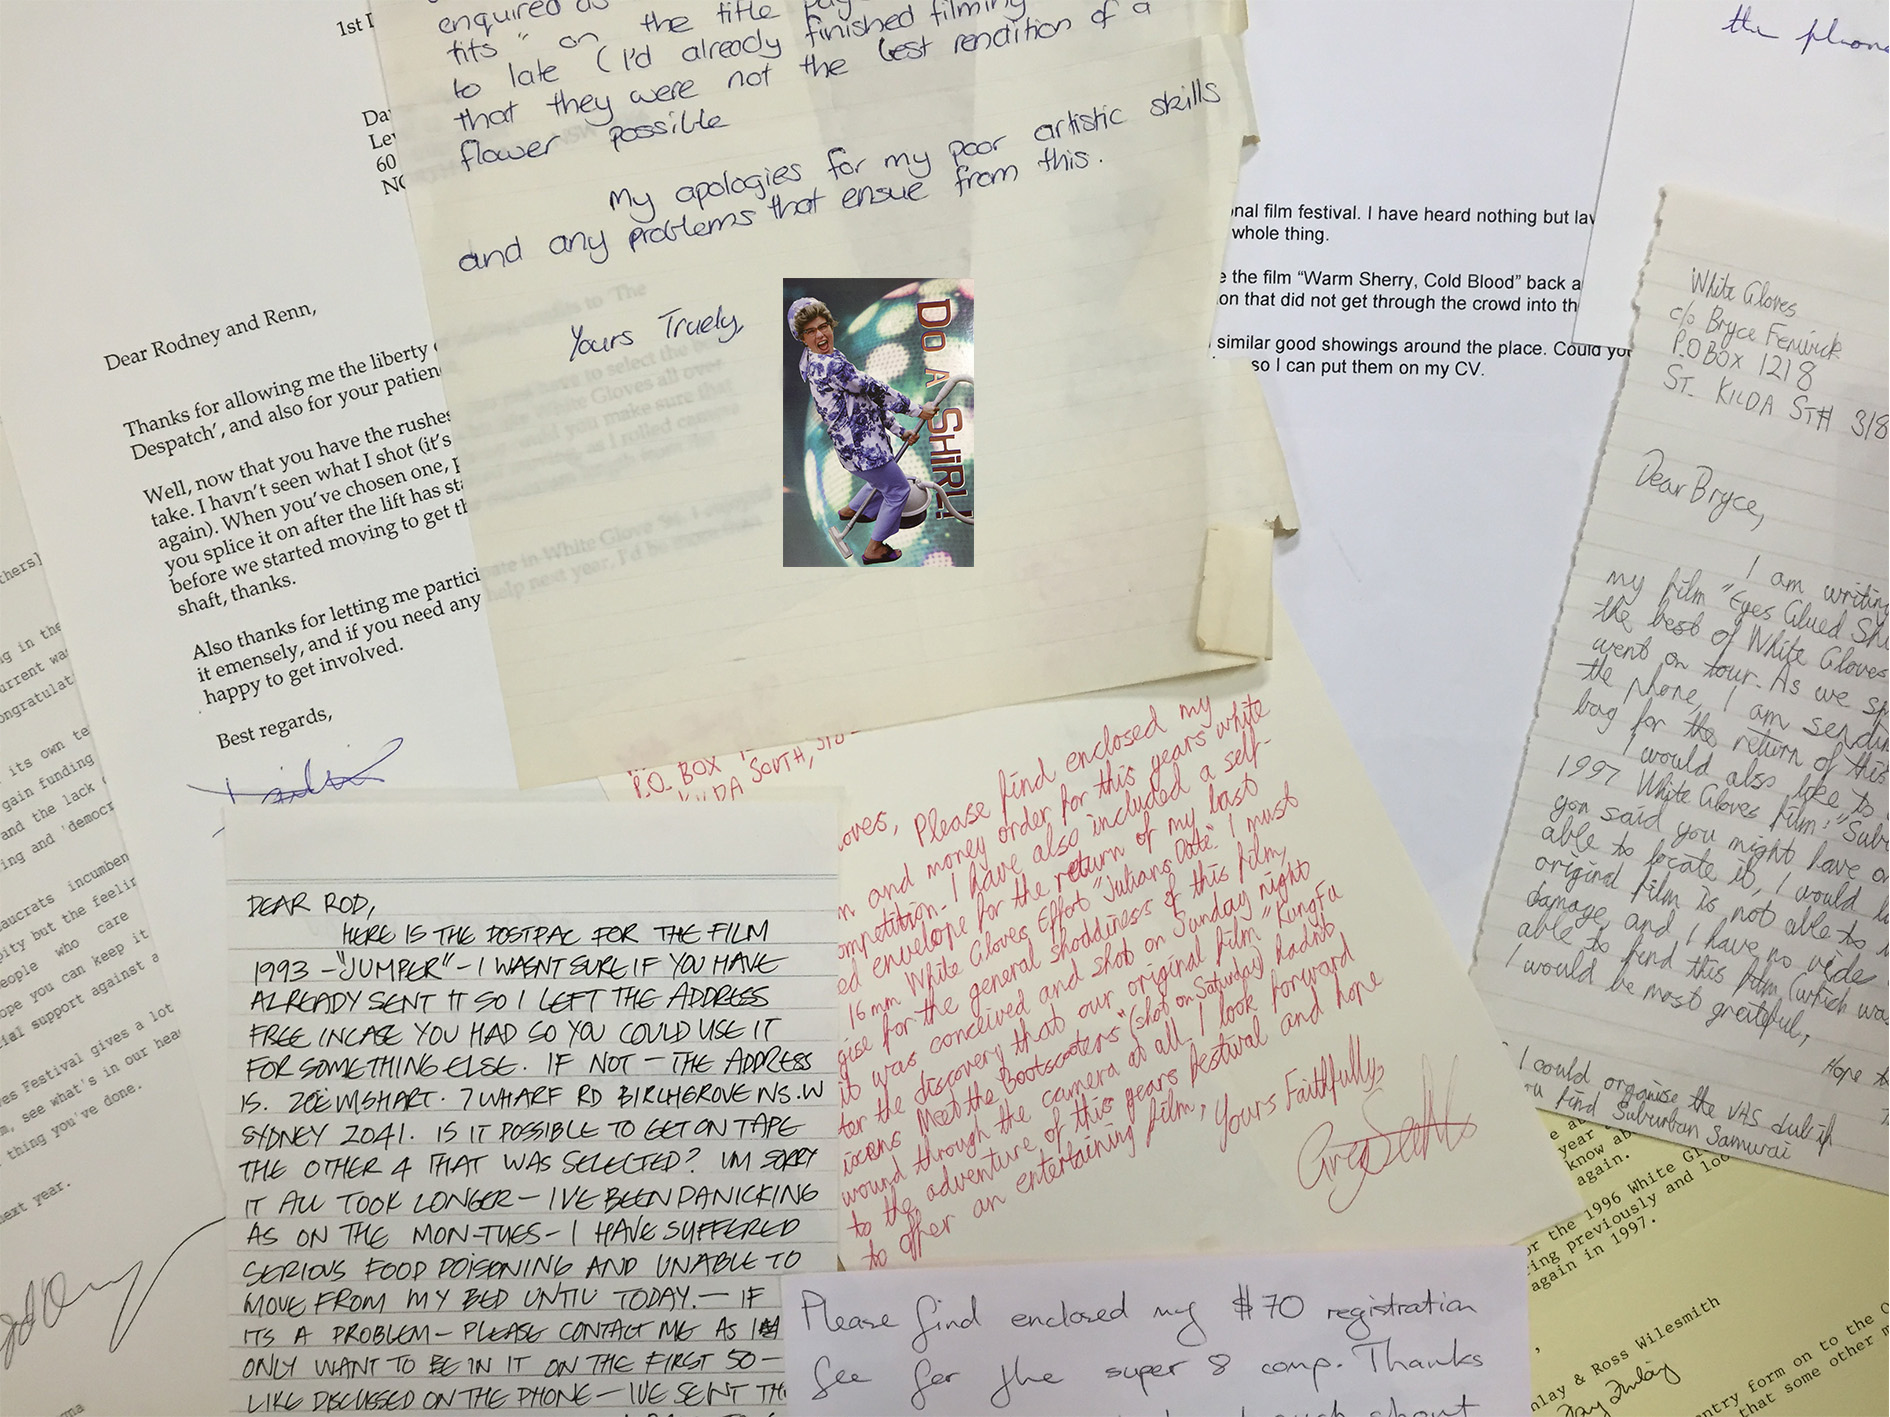 1st
Da
Le
60
NO
Dear Rodney and Renn,
Thanks for allowing me the liberty
Despatch', and also for your patien
Well, now that you have the rushes
take. I havn't seen what I shot (it's
again). When you've chosen one, p
you splice it on after the lift has sta
before we started moving to get th
shaft, thanks.
Also thanks for letting me partici
it emensely, and if you need any
happy to get involved.
Best regards,
enquired as
fits " on the title
to late (I'd already finished filming
that they were not the best rendition of a
flower possible
My apologies for my poor artistic skills
and any problems that ensue from this.
Yours Truely,
DO A SHiRL!
onal film festival. I have heard nothing but lav
whole thing.
e the film "Warm Sherry, Cold Blood" back a
on that did not get through the crowd into th
similar good showings around the place. Could you
so I can put them on my CV.
the phone
White Gloves
c/o Bryce Fenwick
P.O BOX 1218
ST. KILDA STH 318
Dear Bryce,
I am writing
my film "Eyes Glued Shu
the best of White Gloves
went on tour. As we sp
the phone, I am sendin
bag for the return of this
I would also like to
1997 White Gloves film: "Sub
you said you might have or
able to locate it, I would
original film is not able to
damage, and I have no vide
able to find this film (which was
I would be most grateful,
Hope
I could organise the VHS dub if
you find Suburban Samurai
thers]
g in the
urrent wa
ongratulat
its own te
gain funding
and the lack
ing and 'democr
aucrats incumben
pity but the feelin
eople who care
ope you can keep it
ial support against a
es Festival gives a lot
m, see what's in our hea
thing you've done.
next year.
DEAR ROD,
HERE IS THE POSTPAC FOR THE FILM
1993 - "JUMPER" - I WASNT SURE IF YOU HAVE
ALREADY SENT IT SO I LEFT THE ADDRESS
FREE INCASE YOU HAD SO YOU COULD USE IT
FOR SOMETHING ELSE. IF NOT - THE ADDRESS
IS. 7 WHARF RD BIRCHGROVE N.S.W
SYDNEY 2041. IS IT POSSIBLE TO GET ON TAPE
THE OTHER 4 THAT WAS SELECTED? IM SORRY
IT ALL TOOK LONGER - IVE BEEN PANICKING
AS ON THE MON-TUES - I HAVE SUFFERED
SERIOUS FOOD POISONING AND UNABLE TO
MOVE FROM MY BED UNTIL TODAY. - IF
ITS A PROBLEM - PLEASE CONTACT ME AS I
ONLY WANT TO BE IN IT ON THE FIRST 50 -
LIKE DISCUSSED ON THE PHONE - IVE SENT THI
P.O. BOX
KILDA SOUTH,
oves, Please find enclosed my
m and money order for this years white
ompetition. I have also included a self-
ed envelope for the return of my last
16mm White Gloves Effort "Julians Date". I must
gise for the general shoddiness of this film,
it was conceived and shot on Sunday night
ter the discovery that our original film "KungFu
ixens Meet the Bootscooters" (shot on Saturday) hadnt
wound through the camera at all. I look forward
to the adventure of this years festival and hope
to offer an entertaining film,
Yours Faithfully,
Please find enclosed my $70 registration
fee for the super 8 comp. Thanks
year
know ab
again.
or the 1996 White Gl
ring previously and loo
again in 1997.
nlay & Ross Wilesmith
ntry form on to the
that some other m